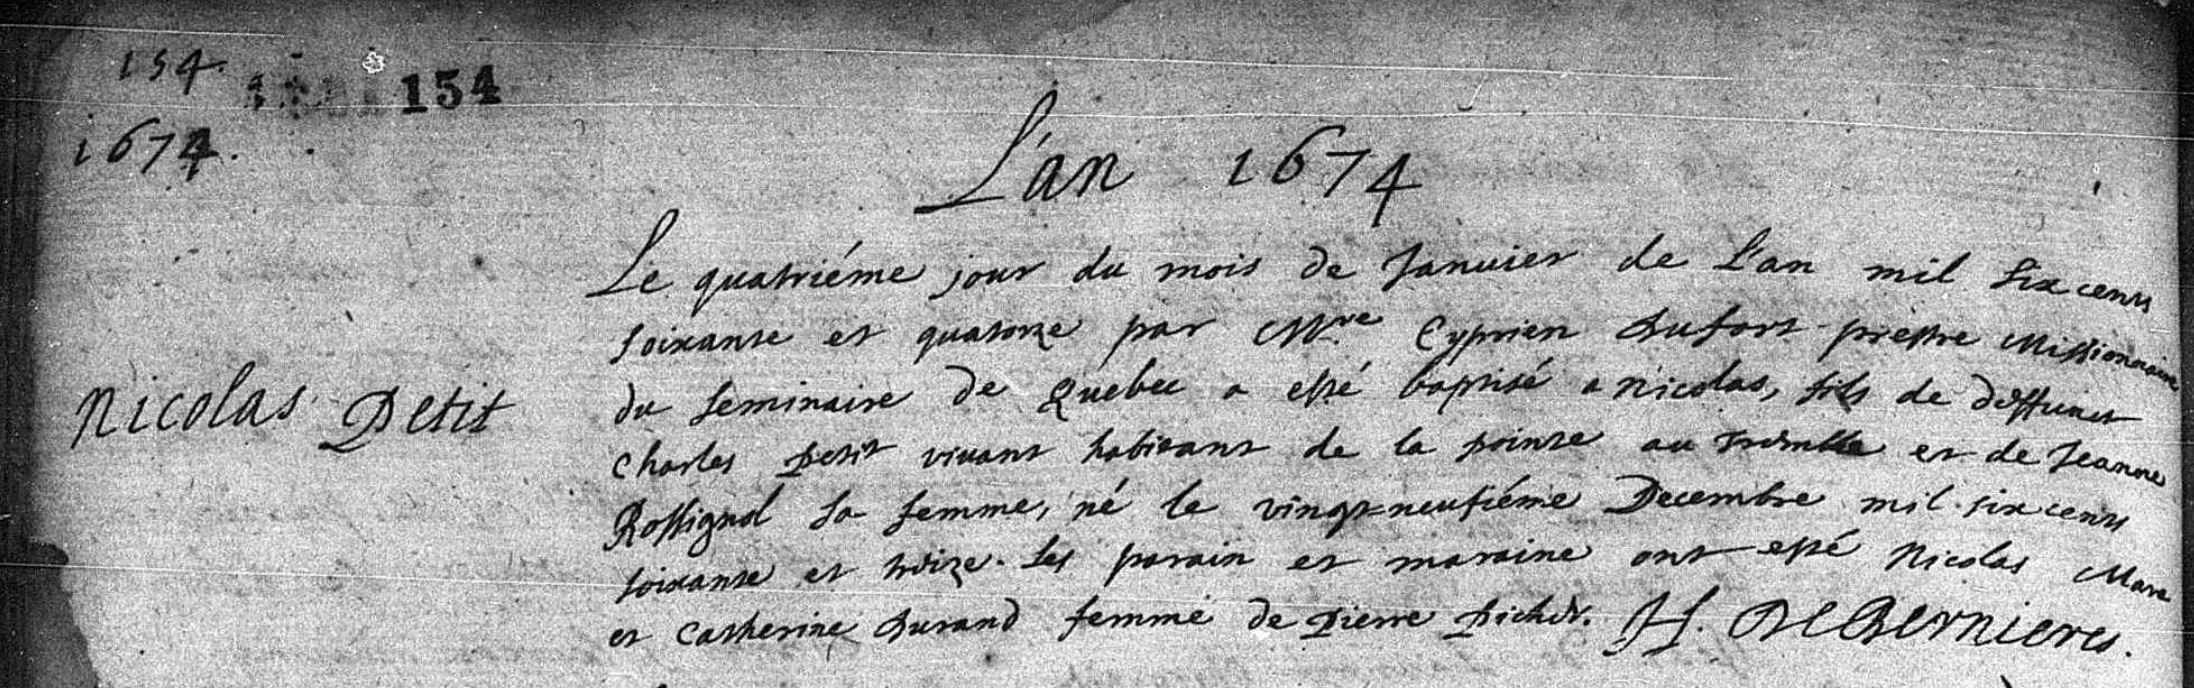 154.
154
1674.
L'an 1674
Le quatriéme jour du mois de Januier de L'an mil six cens
soixante et quatorze par Mre Cyprien Dufort prestre Missionnaire
du seminaire de Quebec a esté baptisé a nicolas, fils de deffunct
Nicolas Petit
Charles Petit viuant habitant de la pointe au Tremble et de Jeanne
Rossignol sa femme, né le vingt-neufiéme Decembre mil six cens
soixante et treize. Les parain et maraine ont esté Nicolas Mare
et Catherine Durand femme de Pierre Picher. H. DeBernieres.